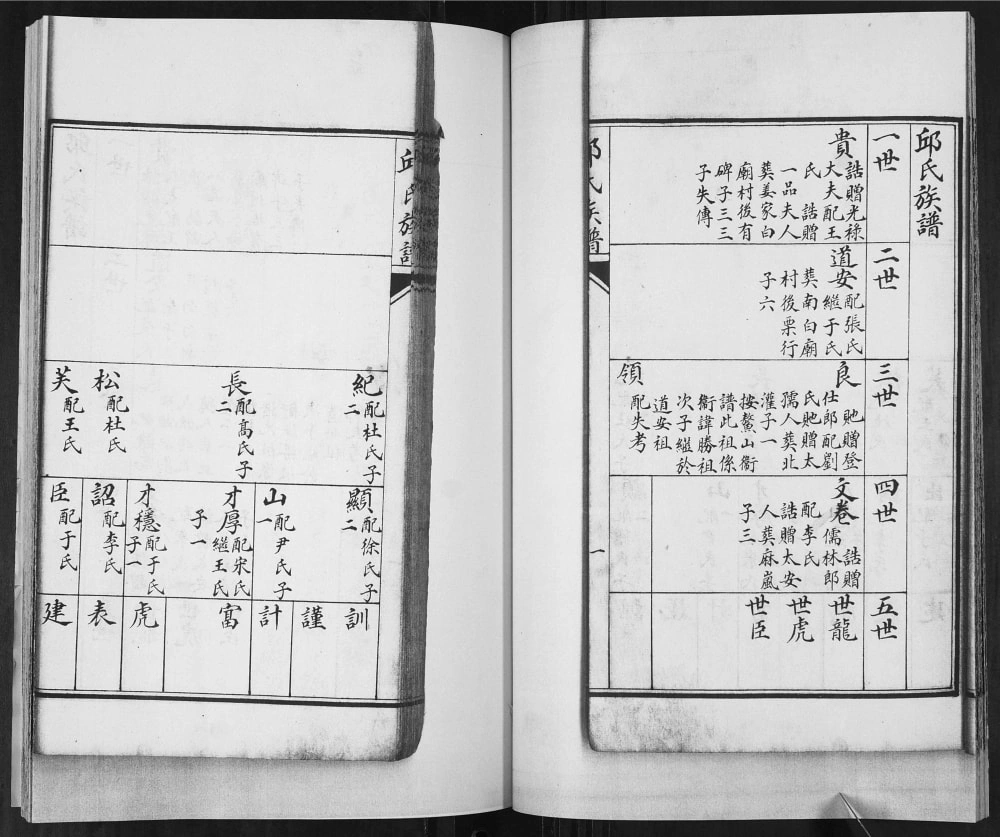 邱氏族譜
一世
貴
誥贈光祿
大夫配王
氏誥贈
一品夫人
葬姜家白
廟村後有
碑子三三
子失傳
二世
道安
配張氏
繼于氏
葬南白廟
村後栗行
子六
三世
良
貤贈登
仕郎配劉
氏貤贈太
孺人葬北
灌子一
按鰲山衛
譜此祖係
衛諱勝祖
次子繼於
道安祖
領
配失考
四世
文卷
誥贈
儒林郎
配李氏
誥贈太安
人葬麻嵐
子三
五世
世龍
世虎
世臣
邱氏族譜
一
邱氏族譜
紀
配杜氏子
二
長
配高氏子
二
松
配杜氏
芙
配王氏
顯
配徐氏子
二
山
配尹氏子
一
才厚
配宋氏
繼王氏
子一
才穩
配于氏
子一
詔
配李氏
臣
配于氏
訓
謹
計
富
虎
表
建